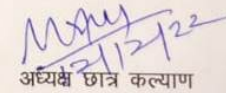 12/12/22
अध्यक्ष छात्र कल्याण